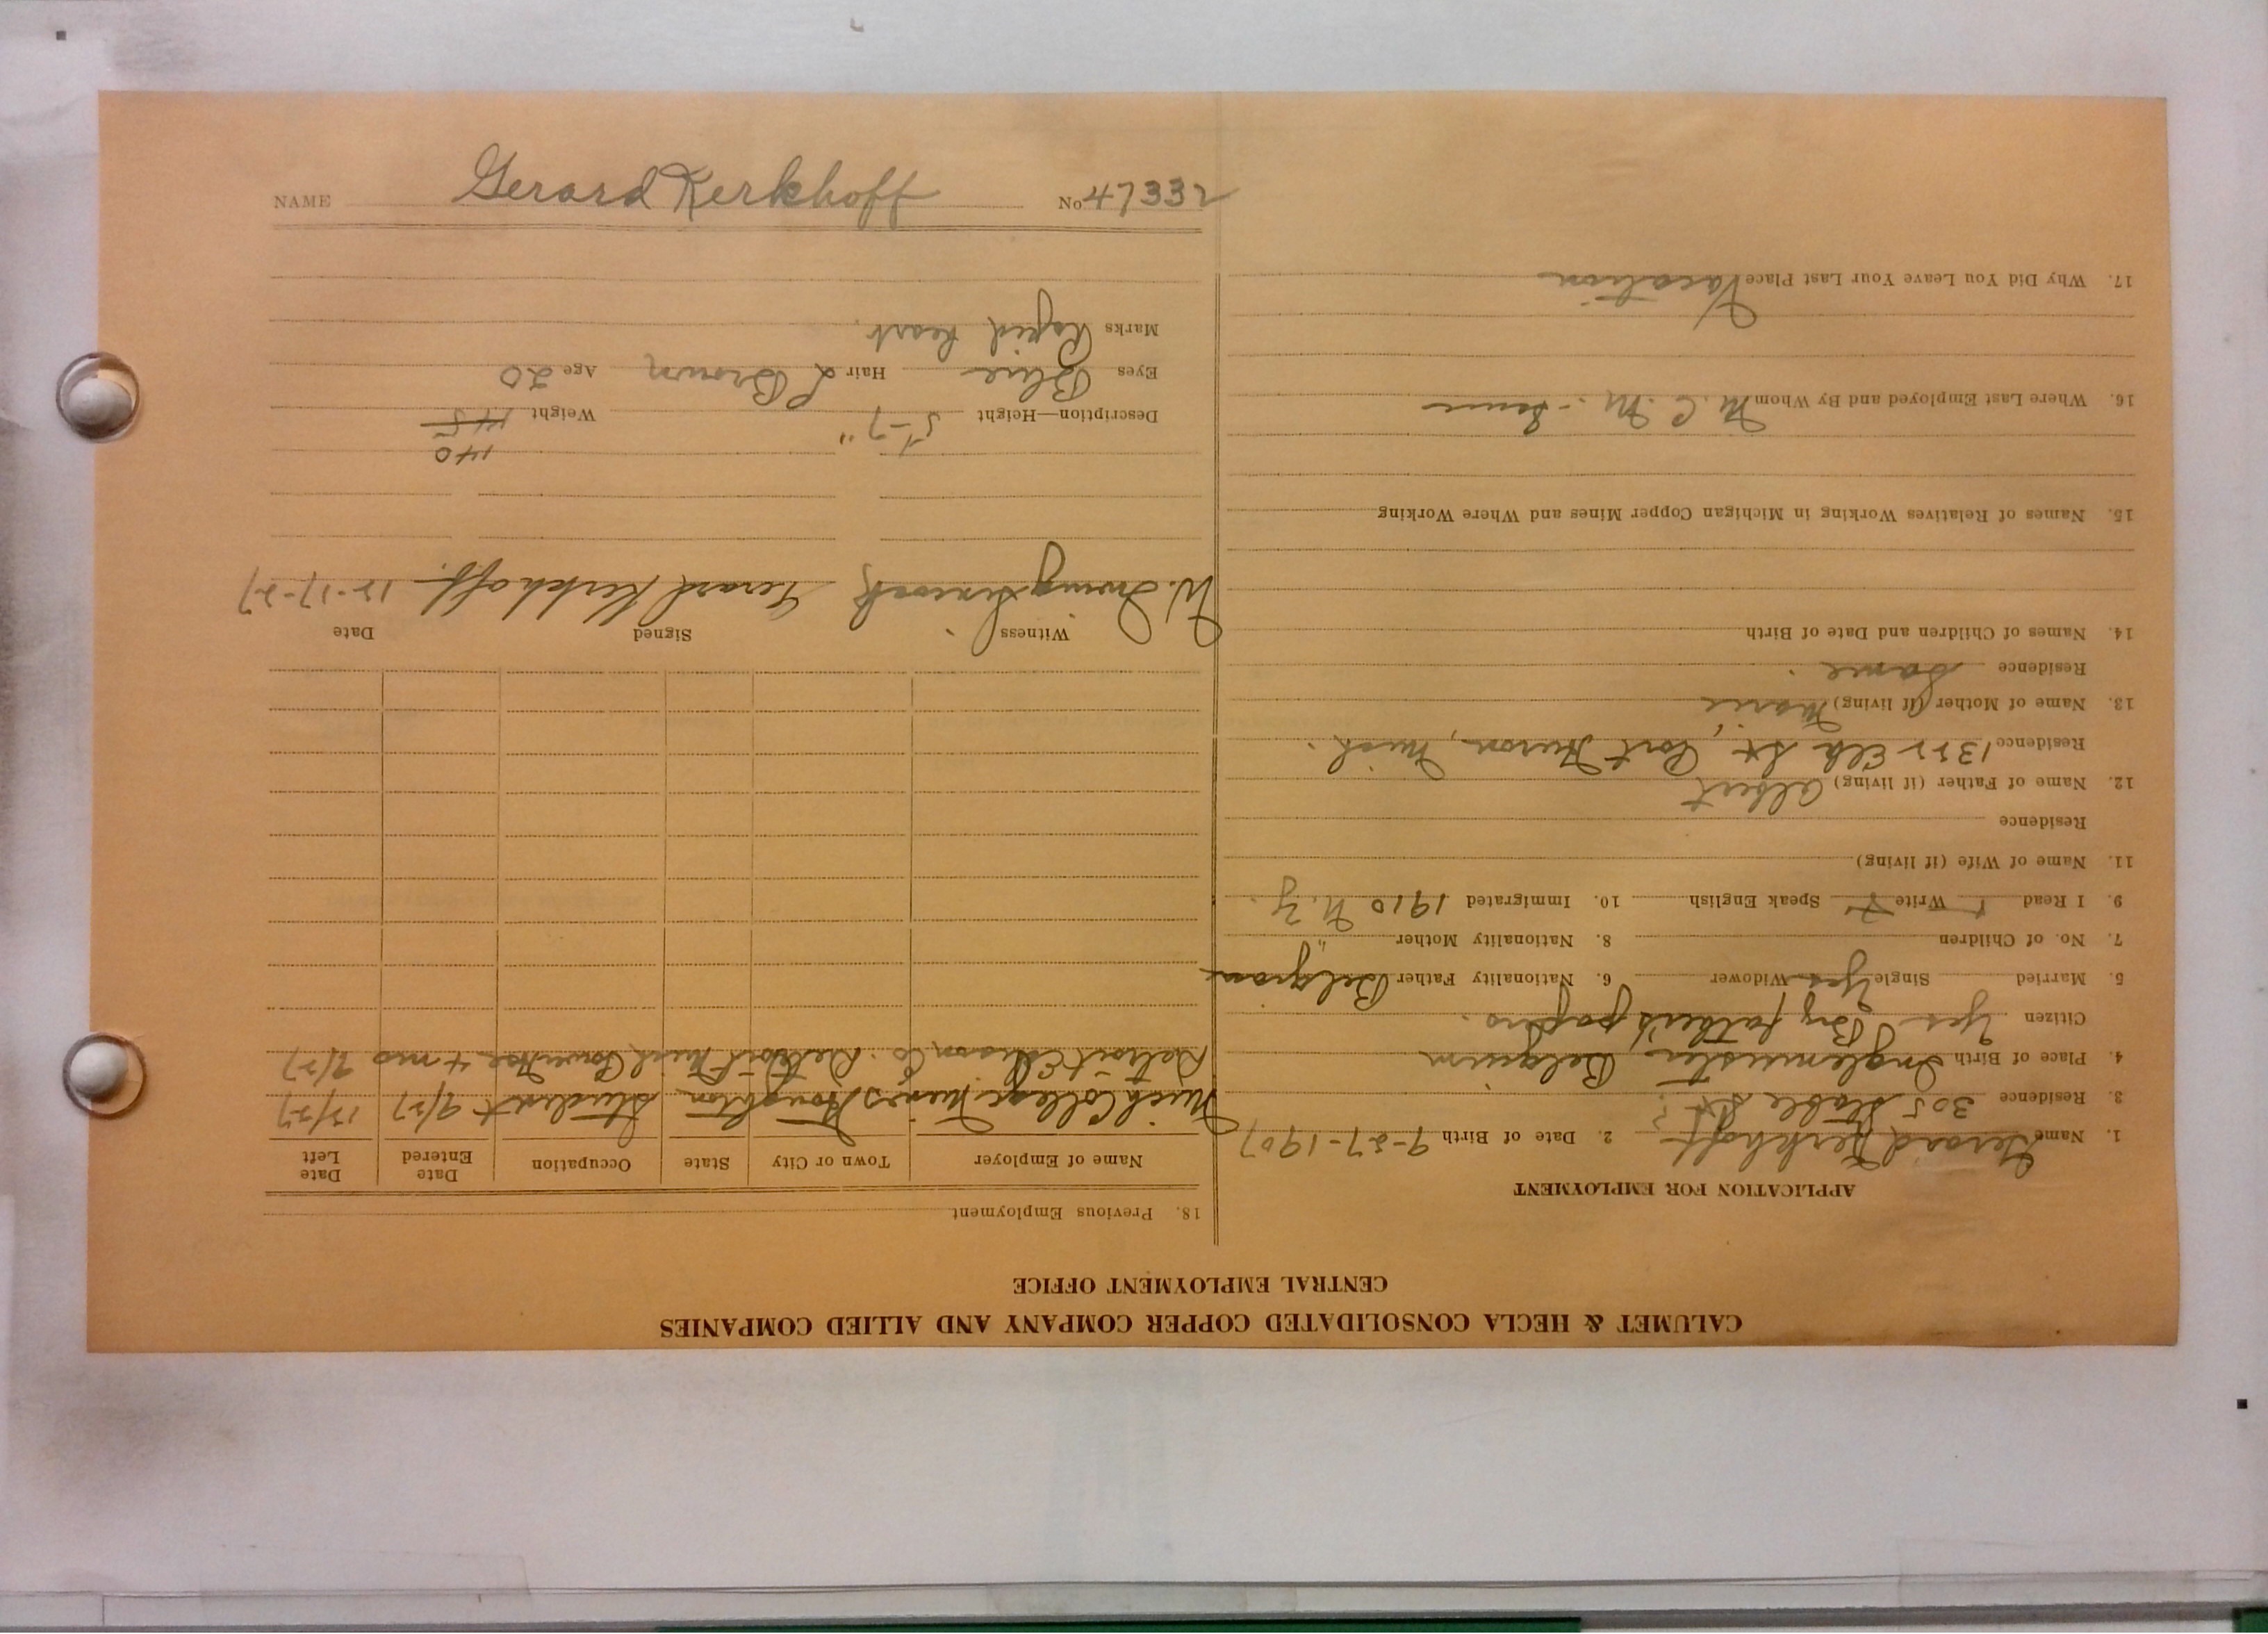 NAME Gerard Kerkhoff No 47332
CALUMET & HECLA CONSOLIDATED COPPER COMPANY AND ALLIED COMPANIES
CENTRAL EMPLOYMENT OFFICE
APPLICATION FOR EMPLOYMENT
1. Name Gerard Kerkhoff 2. Date of Birth 9-27-1907
3. Residence 305 St.
4. Place of Birth Inglemunster Belguim
Citizen Yes By father's papers.
5. Married Single Yes Widower 6. Nationality Father Belgian
7. No. of Children 8. Nationality Mother "
9. I Read Write Speak English 10. Immigrated 1910 N.Y.
11. Name of Wife (if living)
Residence
12. Name of Father (if living) Albert
Residence 1322 Elk St, Port Huron, Mich.
13. Name of Mother (if living) Marie
Residence Same.
14. Names of Children and Date of Birth
15. Names of Relatives Working in Michigan Copper Mines and Where Working
16. Where Last Employed and By Whom M. C. M.
17. Why Did You Leave Your Last Place Vacation
18. Previous Employment
Name of Employer Town or City State Occupation Date Entered Date Left
Mich College Mines Houghton Student 9/27 12/27
Detroit Edison Co. Detroit Mich 4 mo 9/27
Witness Signed Date
W. Irving Gerard Kerkhoff. 12-17-27
140
Description—Height 5'-7" Weight 145
Eyes Blue Hair L Brown Age 20
Marks Rapid heart.